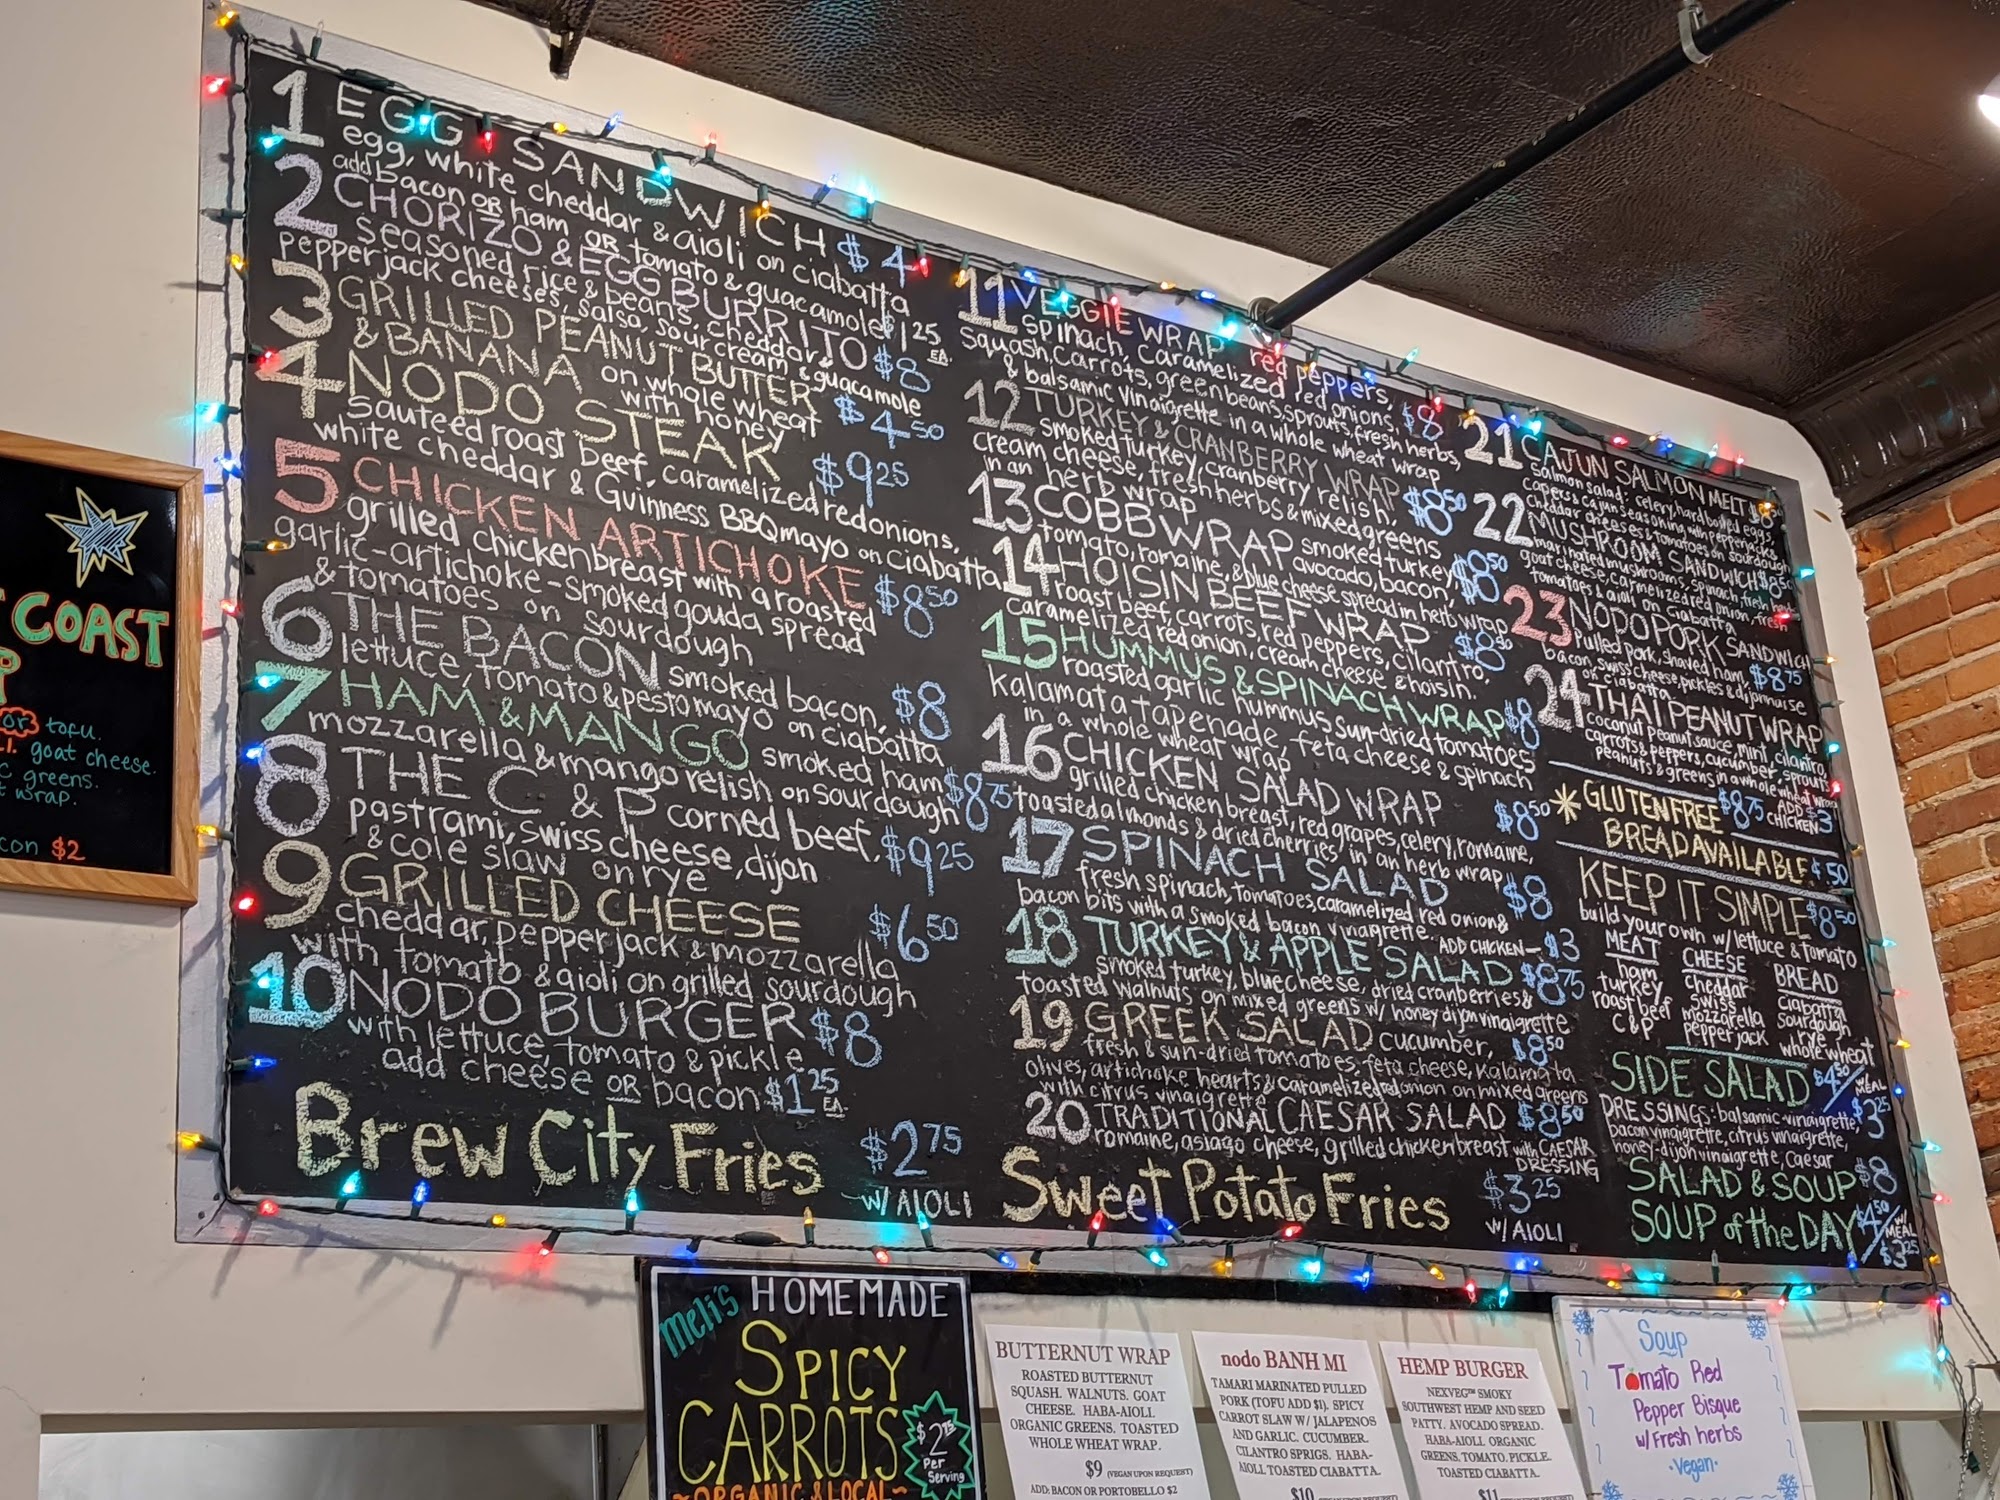 1 EGG SANDWICH $4
egg, white cheddar & aioli on ciabatta
add bacon OR ham OR tomato & guacamole $1.25 EA.
2 CHORIZO & EGG BURRITO $8
seasoned rice & beans, cheddar &
pepperjack cheeses, salsa, sour cream & guacamole
3 GRILLED PEANUT BUTTER
& BANANA on whole wheat $4.50
with honey
4 NODO STEAK $9.25
sauteed roast beef, caramelized red onions,
white cheddar & Guinness BBQ mayo on ciabatta
5 CHICKEN ARTICHOKE $8.50
grilled chicken breast with a roasted
garlic-artichoke-smoked gouda spread
& tomatoes on sourdough
6 THE BACON smoked bacon, $8
lettuce, tomato & pesto mayo on ciabatta
7 HAM & MANGO smoked ham $8.75
mozzarella & mango relish on sourdough
8 THE C & P corned beef, $9.25
pastrami, swiss cheese, dijon
& cole slaw on rye
9 GRILLED CHEESE $6.50
cheddar, pepper jack & mozzarella
with tomato & aioli on grilled sourdough
10 NODO BURGER $8
with lettuce, tomato & pickle
add cheese OR bacon $1.25 EA.
Brew City Fries $2.75
W/ AIOLI
11 VEGGIE WRAP red peppers,
spinach, caramelized red onions, $8
squash, carrots, green beans, sprouts, fresh herbs,
& balsamic vinaigrette in a whole wheat wrap
12 TURKEY & CRANBERRY WRAP $8.50
smoked turkey, cranberry relish,
cream cheese, fresh herbs & mixed greens
in an herb wrap
13 COBB WRAP smoked turkey, $8.50
tomato, romaine, avocado, bacon,
& blue cheese spread in herb wrap
14 HOISIN BEEF WRAP $8.50
roast beef, carrots, red peppers, cilantro,
caramelized red onion, cream cheese & hoisin.
15 HUMMUS & SPINACH WRAP $8
roasted garlic hummus sun-dried tomatoes
Kalamata tapenade, feta cheese & spinach
in a whole wheat wrap
16 CHICKEN SALAD WRAP $8.50
grilled chicken breast, red grapes, celery, romaine,
toasted almonds & dried cherries in an herb wrap
17 SPINACH SALAD $8
fresh spinach, tomatoes, caramelized red onion &
bacon bits with a smoked bacon vinaigrette ADD CHICKEN- $3
18 TURKEY & APPLE SALAD $8.75
smoked turkey, blue cheese, dried cranberries &
toasted walnuts on mixed greens w/ honey dijon vinaigrette
19 GREEK SALAD cucumber, $8.50
fresh & sun-dried tomatoes, feta cheese, kalamata
olives, artichoke hearts & caramelized red onion on mixed greens
with citrus vinaigrette
20 TRADITIONAL CAESAR SALAD $8.50
romaine, asiago cheese, grilled chicken breast with CAESAR DRESSING
Sweet Potato Fries $3.25
W/ AIOLI
21 CAJUN SALMON MELT $8
salmon salad: celery, hard boiled eggs,
capers & cajun seasoning with pepperjack &
cheddar cheeses & tomatoes on sourdough
22 MUSHROOM SANDWICH $8.50
marinated mushrooms, spinach, fresh herb
goat cheese, carmelized red onion, fresh
tomatoes & aioli on ciabatta
23 NODO PORK SANDWICH
pulled pork, shaved ham, $8.75
bacon, swiss cheese, pickles & dijonnaise
on ciabatta
24 THAI PEANUT WRAP
coconut peanut sauce, mint, cilantro,
carrots & peppers, cucumber, sprouts,
peanuts & greens in a whole wheat wrap
$8.75 ADD CHICKEN $3
* GLUTEN FREE
BREAD AVAILABLE $.50
KEEP IT SIMPLE $8.50
build your own w/ lettuce & tomato
MEAT CHEESE BREAD
ham cheddar ciabatta
turkey swiss sourdough
roast beef mozzarella rye
C&P pepper jack whole wheat
SIDE SALAD $4.50/W/ MEAL $3.25
DRESSINGS- balsamic-vinaigrette,
bacon vinaigrette, citrus vinaigrette,
honey-dijon vinaigrette, caesar
SALAD & SOUP $8
SOUP of the DAY $4.50/W/ MEAL $3.25
COAST
or tofu.
goat cheese.
greens.
wrap.
$2
Meli's HOMEMADE
SPICY
CARROTS
$2.75 Per Serving
~ORGANIC & LOCAL~
BUTTERNUT WRAP
ROASTED BUTTERNUT
SQUASH. WALNUTS. GOAT
CHEESE. HABA-AIOLI.
ORGANIC GREENS. TOASTED
WHOLE WHEAT WRAP.
$9 (VEGAN UPON REQUEST)
ADD: BACON OR PORTOBELLO $2
nodo BANH MI
TAMARI MARINATED PULLED
PORK (TOFU ADD $1). SPICY
CARROT SLAW W/ JALAPENOS
AND GARLIC. CUCUMBER.
CILANTRO SPRIGS. HABA-
AIOLI TOASTED CIABATTA.
$10
HEMP BURGER
NEXVEG™ SMOKY
SOUTHWEST HEMP AND SEED
PATTY. AVOCADO SPREAD.
HABA-AIOLI. ORGANIC
GREENS. TOMATO. PICKLE.
TOASTED CIABATTA.
$11
Soup
Tomato Red
Pepper Bisque
w/ Fresh herbs
·vegan·